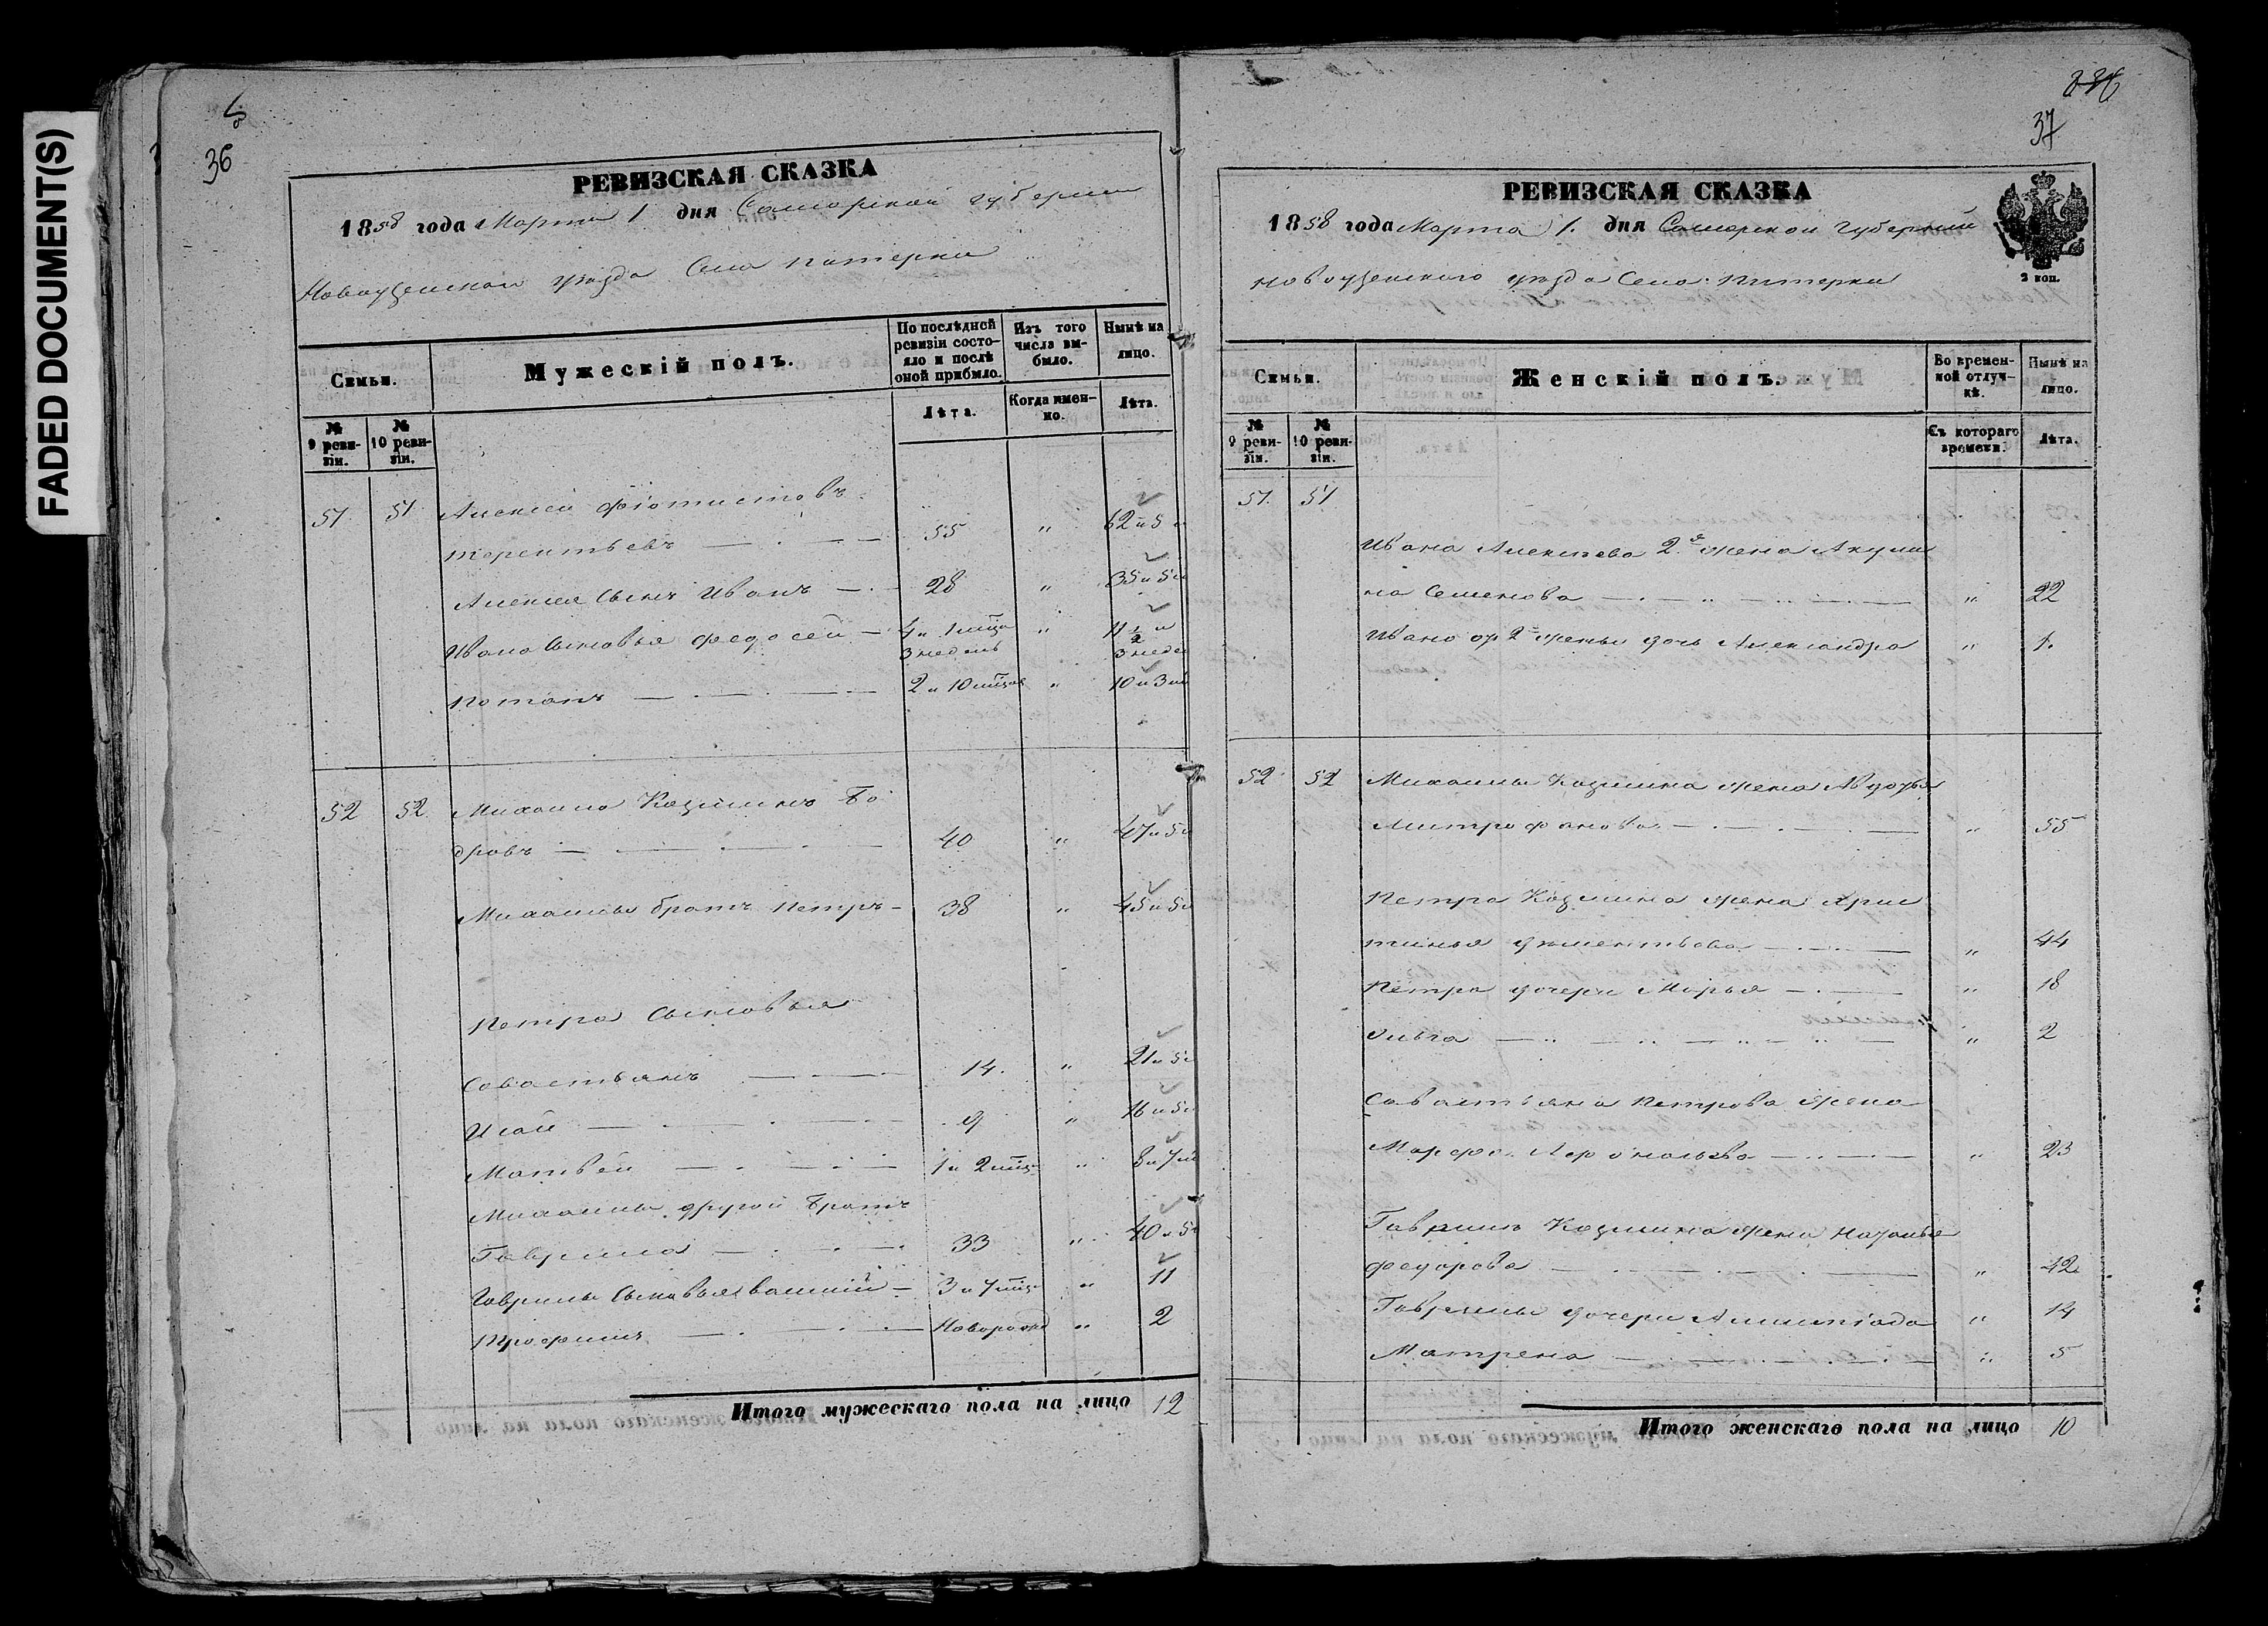 FADED DOCUMENT(S)
36
РЕВИЗСКАЯ СКАЗКА
1858 года Марта 1 дня Самарской губернии
Новоузенскаго уезда Села Питерки
Семьи.
Мужескій полъ.
По послѣдней ревизіи состояло и послѣ оной прибыло.
Изъ того числа выбыло.
Нынѣ на лицо.
№ 9 ревизіи.
№ 10 ревизіи.
Лѣта.
Когда именно.
Лѣта.
51 51 Алексей Фиотистовъ
Терентьевъ 55 " 62 и 5
Алексея Сынъ Иванъ 28 " 35 и 5
Ивана Сыновья Федосей 4 и 1 мца 3 недель " 11 1/2 и 3 недел
Потапъ 2 и 10 мцов " 10 и 3
52 52 Михаила Козминъ Бо
дровъ 40 " 47 и 5
Михаилы братъ Петръ 38 " 45 и 5
Петра Сыновья
Савостьянъ 14. " 21 и 5
Исай 9 " 16 и 5
Матвей 1 и 2 мца " 8 и 7
Михаилы другой братъ
Гаврила 33 " 40 и 5
Гаврилы Сыновья 3 и 7 мца " 11
Трофимъ Новорожд " 2
Итого мужескаго пола на лицо 12
37
РЕВИЗСКАЯ СКАЗКА
1858 года Марта 1. дня Самарской Губерний
Новоузенскаго уезда Села Питерки
2 коп.
Семьи.
Женскій полъ.
Во временной отлучкѣ.
Нынѣ на лицо.
№ 9 ревизіи.
№ 10 ревизіи.
Съ котораго времени.
Лѣта.
51. 51
Ивана Алексеева 2я жена Акули
на Семенова " 22
Ивана от 2 жены дочь Александра " 1.
52 52 Михаилы Козмина жена Авдотья
Митрофанова " 55
Петра Козмина жена Хрис
тинья " 44
Петра дочери Марья " 18
Ольга " 2
Савастьяна Петрова жена
Марфа " 23
Гаврилы Козмина жена Наталья
Федорова " 42
Гаврилы дочери Алимпіада " 14
Матрена " 5
Итого женскаго пола на лицо 10